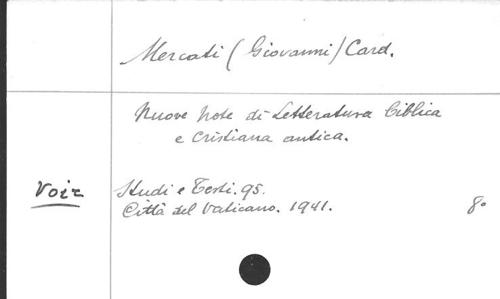 Mercati (Giovanni) Card.
Nuove Note di Letteratura Biblica
e Cristiana antica.
Voir Studi e Testi. 95.
Città del Vaticano. 1941. 8º